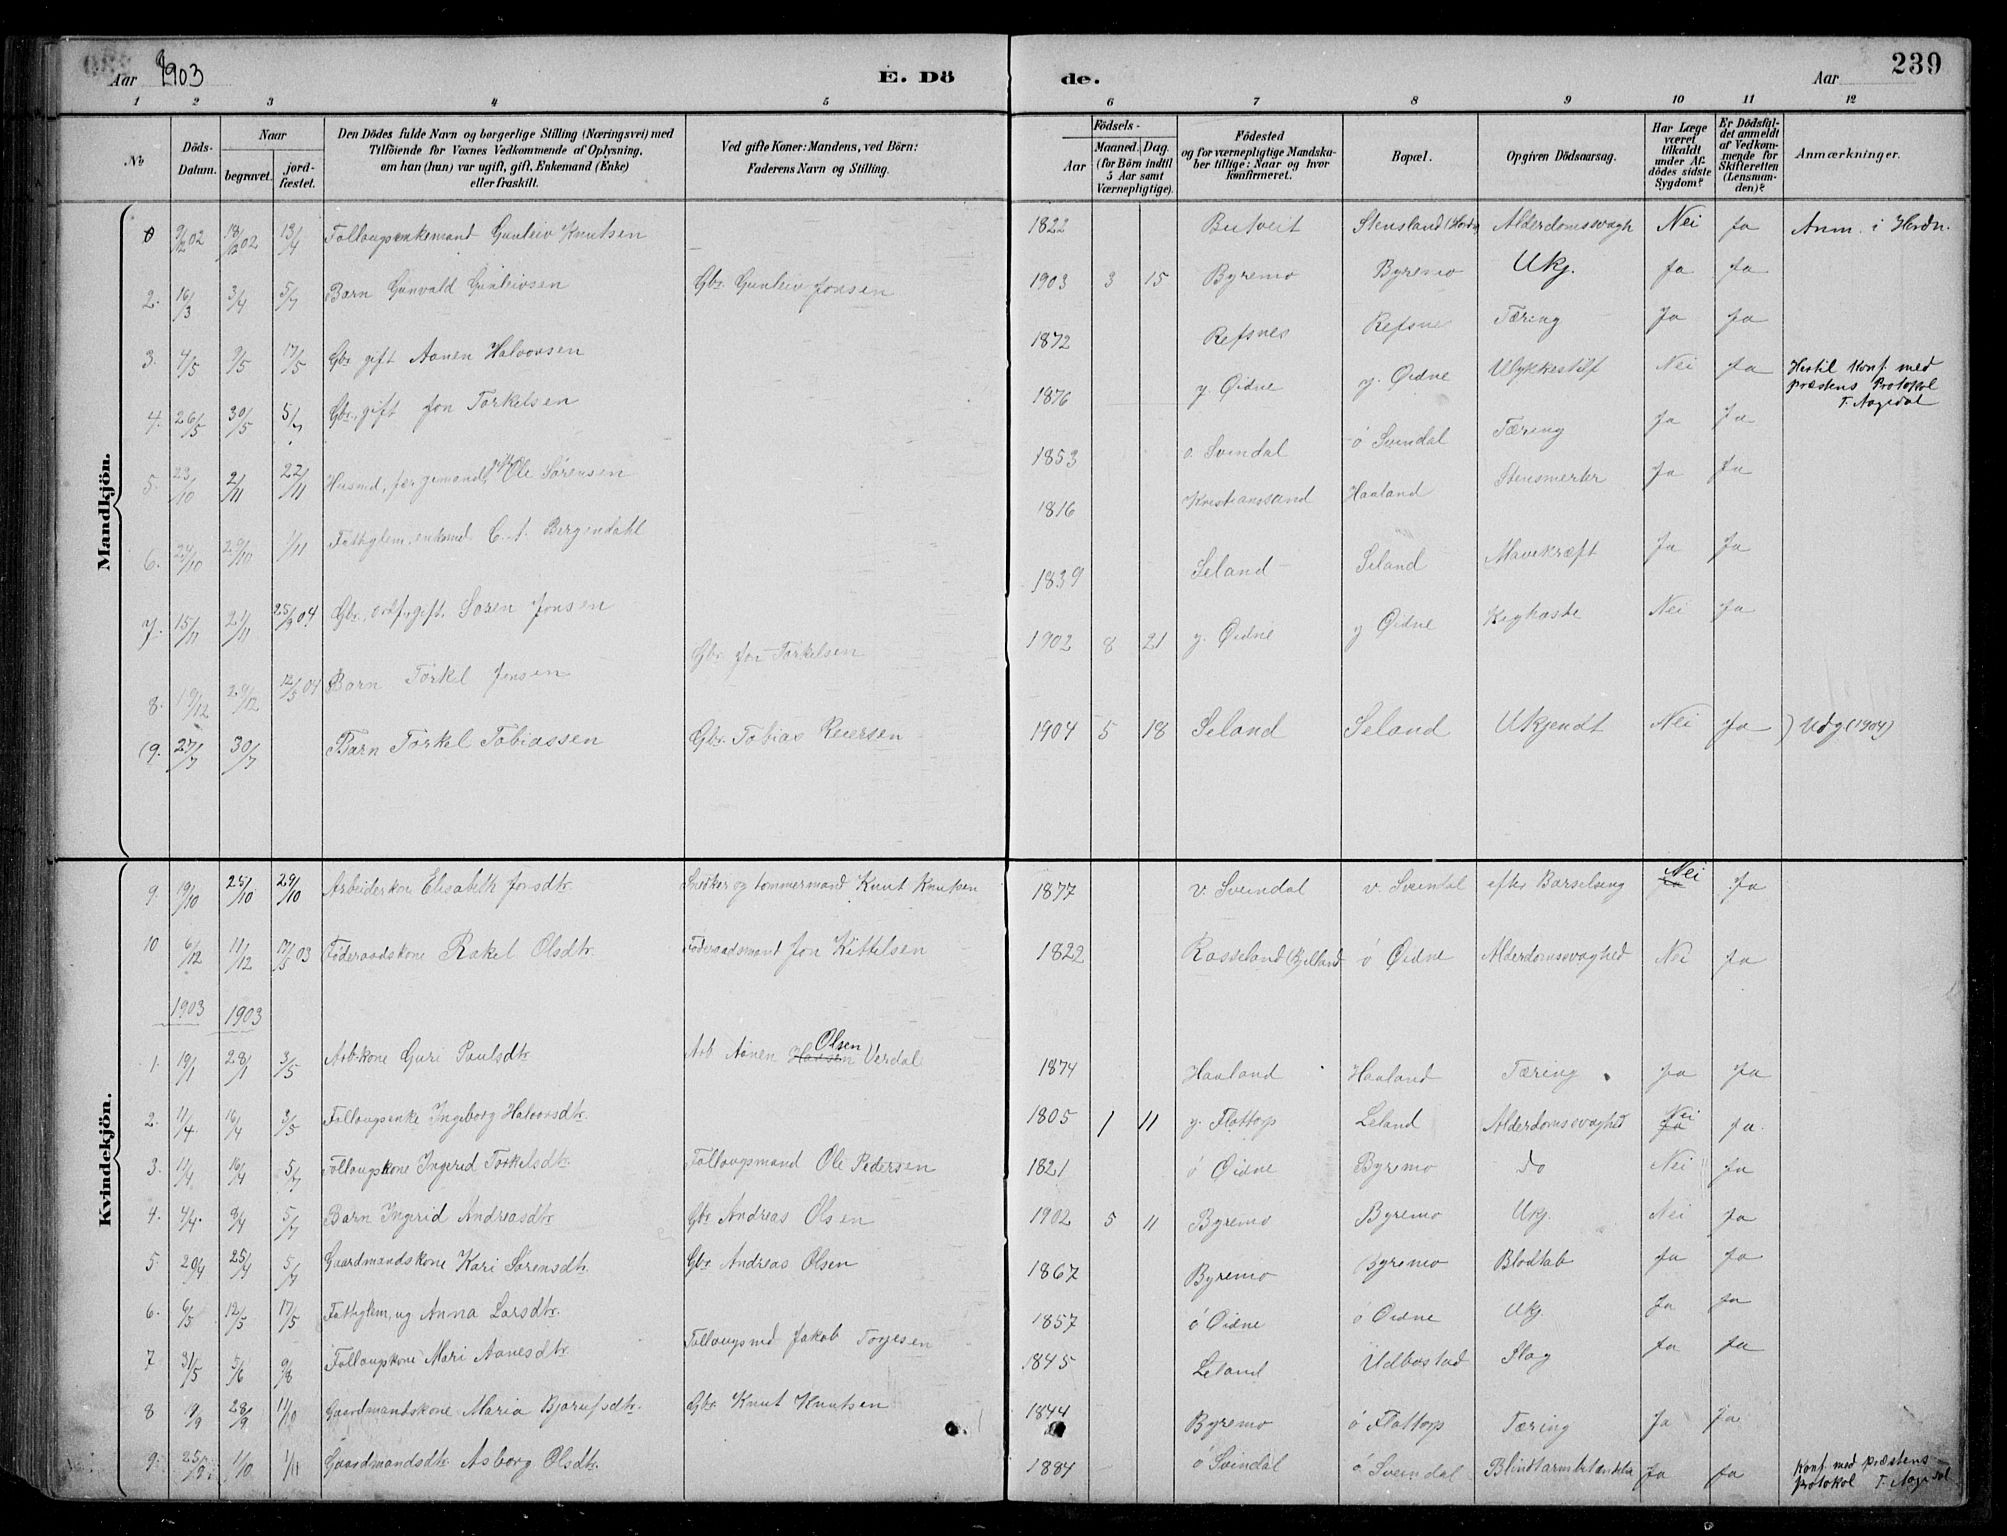 Aar 1903 E. Dö de. Aar 239
1 2 3 4 5 6 7 8 9 10 11 12
No
Döds-Datum.
Naar
begravet.
jordfæstet.
Den Dödes fulde Navn og borgerlige Stilling (Næringsvei) med
Tilföiende for Voxnes Vedkommende af Oplysning,
om han (hun) var ugift, gift, Enkemand (Enke)
eller fraskilt.
Ved gifte Koner: Mandens, ved Börn:
Faderens Navn og Stilling.
Födsels-
Aar
Maaned. Dag.
(for Börn indtil
5 Aar samt
Værnepligtige).
Födested
og for værnepligtige Mandskaber tillige: Naar og hvor
konfirmeret.
Bopæl.
Opgiven Dödsaarsag.
Har Læge
været
tilkaldt
under Afdödes sidste
Sygdom?
Er Dödsfaldet anmeldt
af Vedkommende for
Skifteretten
(Lensmanden)?
Anmærkninger.
Mandkjön.
9/12 02 18/12 02 13/4 Follaugsenkemand Gunleiv Knutsen 1822 Butveit Stensland Alderdomssvagh Nei Ja Anm. i
2. 16/3 3/4 5/7 Barn Gunvald Gunleivsen Gbr. Gunleiv Jonsen 1903 3 15 Byremo Byremo Ukj. Ja Ja
3. 4/5 9/5 17/5 Gbr gift Aanen Halvorsen 1872 Refsnes Refsne Tæring Ja Ja
4. 26/5 30/5 5/7 Gbr. gift Jon Torkelsen 1876 y. Øidne y. Øidne Ulykkestilf Nei Ja Hertil Konf. med
præstens Protokol
T. Aagedal
5. 23/10 2/11 22/11 Husmd, Ole Sørensen 1853 ø. Sveindal ø Sveindal Tæring Ja Ja
6. 24/10 29/10 1/11 Fattiglem, enkemd C. A. Bergendahl 1816 Kristianssand Haaland Stensmerter Ja Ja
7. 15/11 21/11 25/3 04 Gbr, gift. Søren Jonsen 1839 Seland Seland Mavekræft Ja Ja
8. 19/12 29/12 12/5 04 Barn Torkel Jonsen Gbr Jon Torkelsen 1902 8 21 y. Øidne y Øidne Kighoste Nei Ja
(9. 27/7 30/7 Barn Torkel Tobiassen Gbr. Tobias Reiersen 1904 5 18 Seland Seland Ukjendt Nei Ja ) Udg (1904)
Kvindekjön.
9. 19/10 25/10 29/10 Arbeiderkone Elisabeth Jonsdtr. Snedker og tømmermand Knut Knutsen 1877 v. Sveindal v. Sveindal efter Barselseng Nei Ja
10 6/12 11/12 17/5 03 Føderaadskone Rakel Olsdtr. Føderaadsmand Jon Kittelsen 1822 Rosseland (Bjelland ø Øidne Alderdomssvaghed Nei Ja
1903 1903
1. 19/1 28/1 3/5 Arb.kone Guri Paulsdtr Arb Aanen Hansen Olsen Verdal 1874 Haaland Haaland Tæring Ja Ja
2. 11/4 16/4 3/5 Follaugsenke Ingeborg Halvorsdtr. 1805 1 11 y. Flottorp Leland Alderdomssvaghed Ja Nei Ja.
3. 11/4 16/4 5/7 Follaugskone Ingerid Torkelsdtr. Follaugsmand Ole Pedersen 1821 ø Øidne Byremo do Nei Ja
4. 4/4 9/4 5/7 Barn Ingerid Andreasdtr Gbr Andreas Olsen 1902 5 11 Byremo Byremo Ukj. Nei Ja
5. 20/4 25/4 5/7 Gaardmandskone Kari Sørensdtr. Gbr Andreas Olsen 1867 Byremo Byremo Blodtab Ja Ja
6. 6/5 12/5 17/5 Fattiglem, ug Anna Larsdtr. 1857 ø Øidne ø Øidne Ukj. Ja Ja
7 31/5 5/6 9/8 Follaugskone Mari Aanesdtr. Follaugsmd Jakob Torjesen 1845 Leland Udbostad Slag Ja Ja
8 19/9 28/9 11/10 Gaardmandskone Maria Bjørufsdtr. Gbr Knut Knutsen 1844 Byremo ø Flottorp Tæring Ja Ja
9. 25/9 1/10 1/11 Gaardmandsdtr. Asborg Olsdtr. 1884 ø Sveindal ø Sveindal Blindtarmbetændelse Ja Ja Konf. med præstens
protokol T. Aagedal